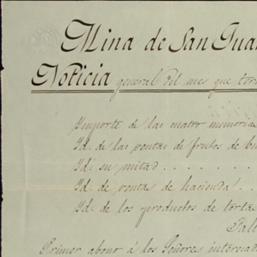 Mina de San Jua
Noticia general del mes que to
Importe de las cuatro memorias
Id. de las ventas de frutos de
Id. su mitad . . . . . . .
Id. de ventas de hacienda . .
Id. de los productos de torta
Primer abono á los Señores interesad